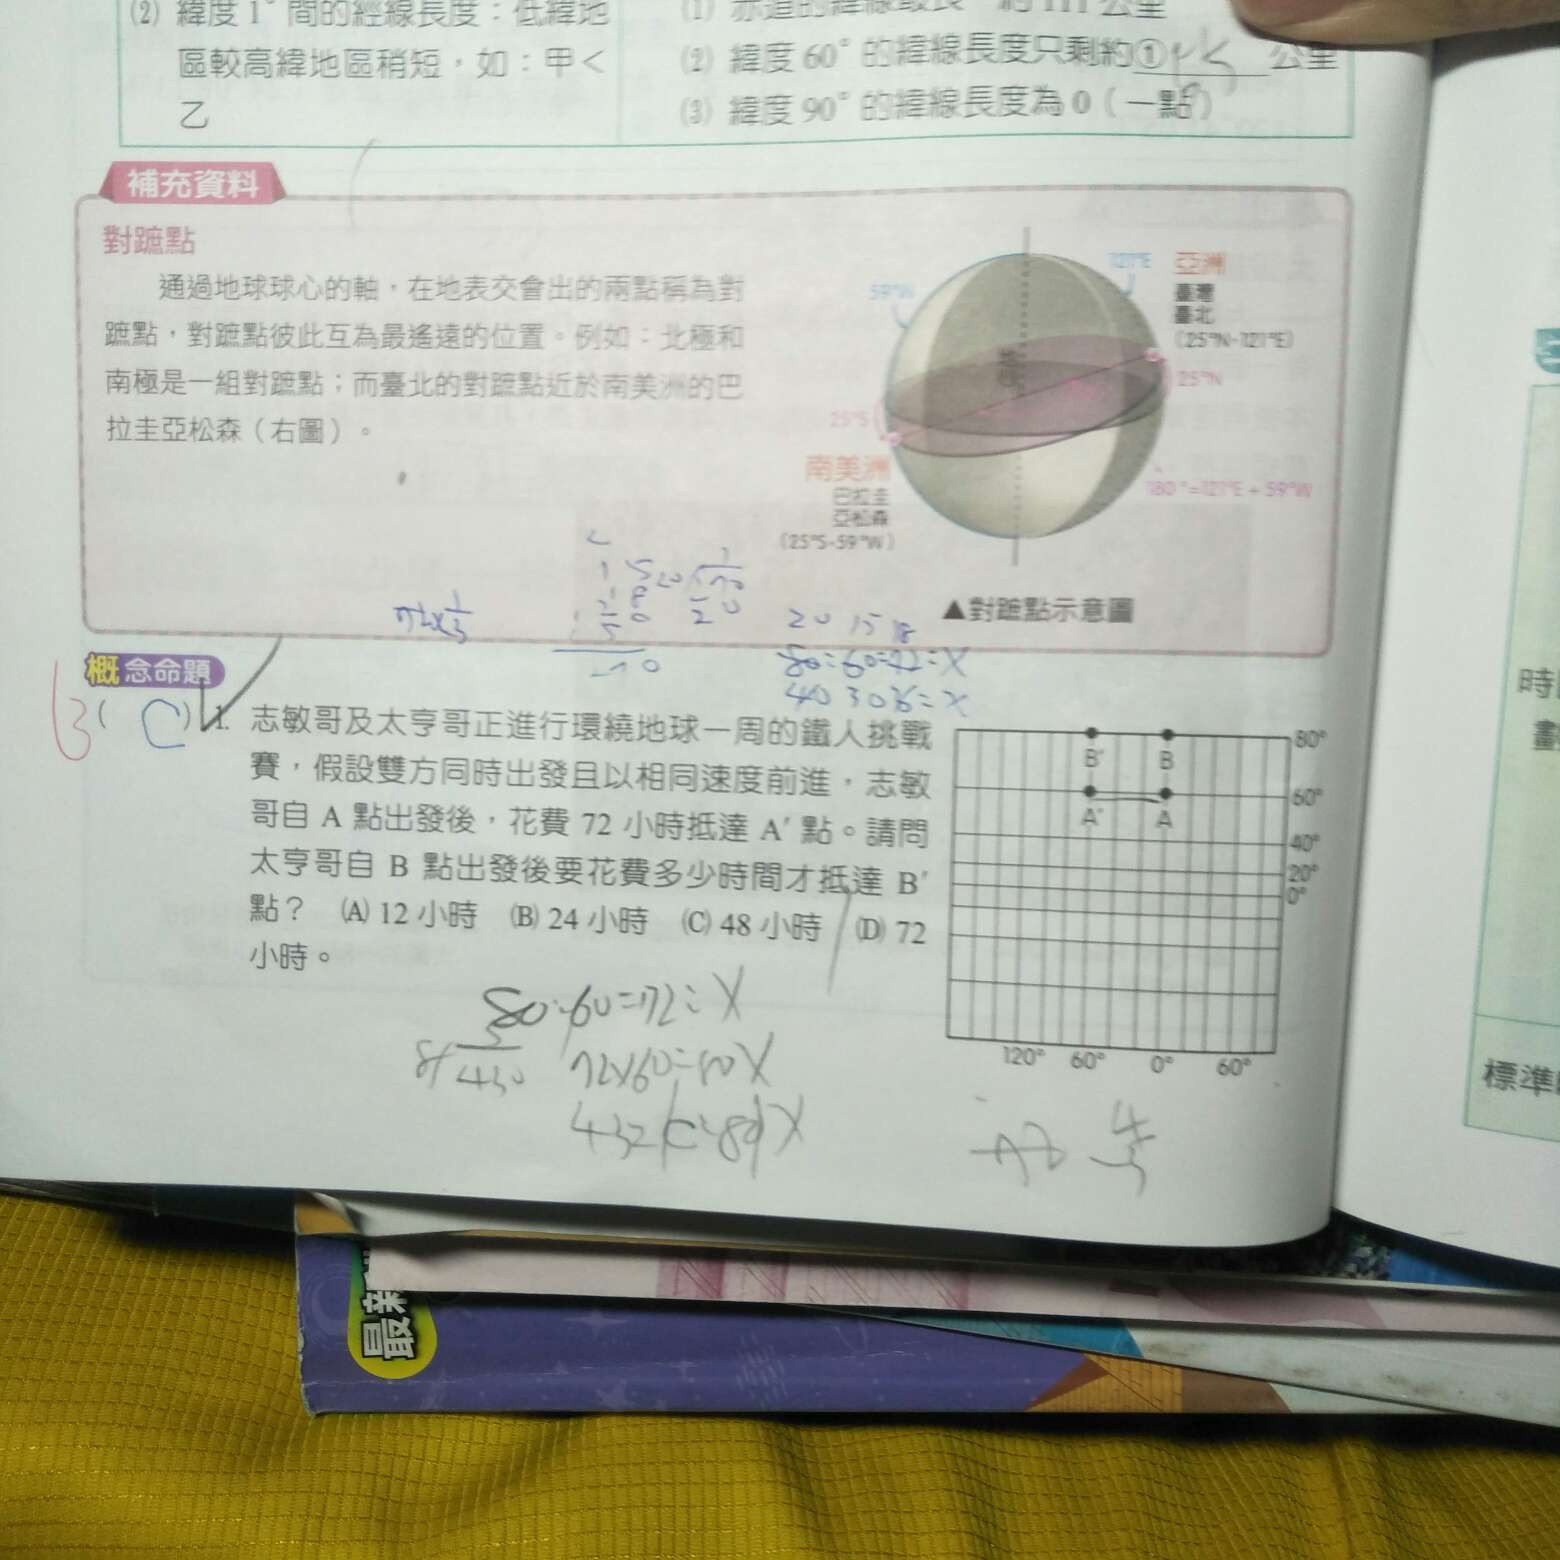 (2) 緯度1°間的經線長度：低緯地
區較高緯地區稍短，如：甲<
乙
(2) 緯度60°的緯線長度只剩約① 公里
(3) 緯度90°的緯線長度為0（一點）
補充資料
對蹠點
通過地球球心的軸，在地表交會出的兩點稱為對
蹠點，對蹠點彼此互為最遙遠的位置。例如：北極和
南極是一組對蹠點；而臺北的對蹠點近於南美洲的巴
拉圭亞松森（右圖）。
59°W
121°E
亞洲
臺灣
臺北
(25°N, 121°E)
25°N
25°S
南美洲
巴拉圭
亞松森
(25°S, 59°W)
180°=121°E+59°W
▲對蹠點示意圖
80:60=72:X
概念命題
B ( C ) 1. 志敏哥及太亨哥正進行環繞地球一周的鐵人挑戰
賽，假設雙方同時出發且以相同速度前進，志敏
哥自 A 點出發後，花費 72 小時抵達 A′ 點。請問
太亨哥自 B 點出發後要花費多少時間才抵達 B′
點？ (A) 12 小時 (B) 24 小時 (C) 48 小時 (D) 72
小時。
B′ B
A′ A
80°
60°
40°
20°
0°
120° 60° 0° 60°
80:60=72:X
72×60=80X
432
標準